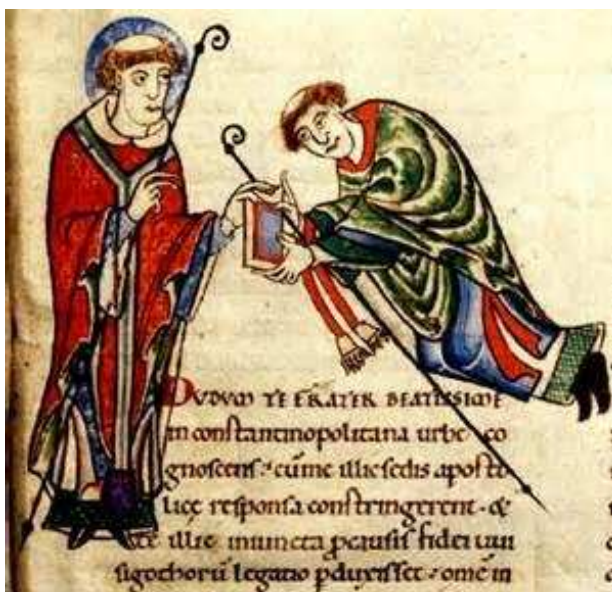 DUDUM TE FRATER BEATISSIME
in constantinopolitana urbe co
gnoscens. cū me illic sedis aposto
lice responsa constringerent. &
te illic iniuncta ꝓ causis fidei uui
sigothorū legatio ꝑduxisset. omē in